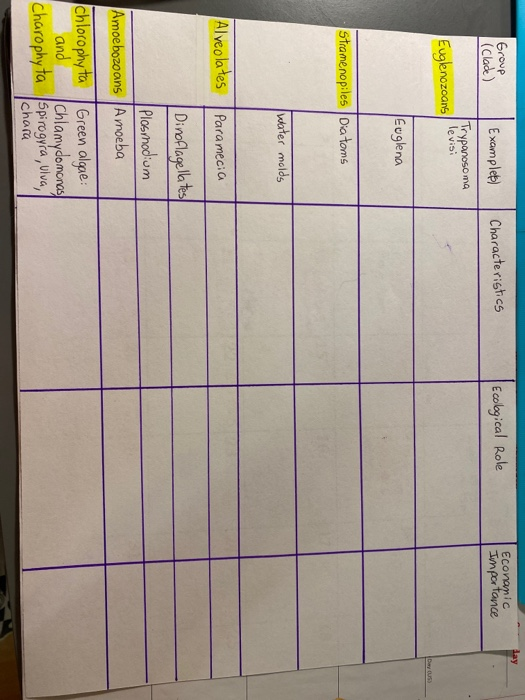 Group
(Clade)
Example(s)
Characteristics
Ecological Role
Economic
Importance
Euglenozoans
Trypanosoma
levisi
Euglena
Stramenopiles
Diatoms
Water molds
Alveolates
Paramecia
Dinoflagellates
Plasmodium
Amoebozoans
Amoeba
Chlorophyta
and
Charophyta
Green algae:
Chlamydomonas,
Spirogyra, Ulva,
Chara